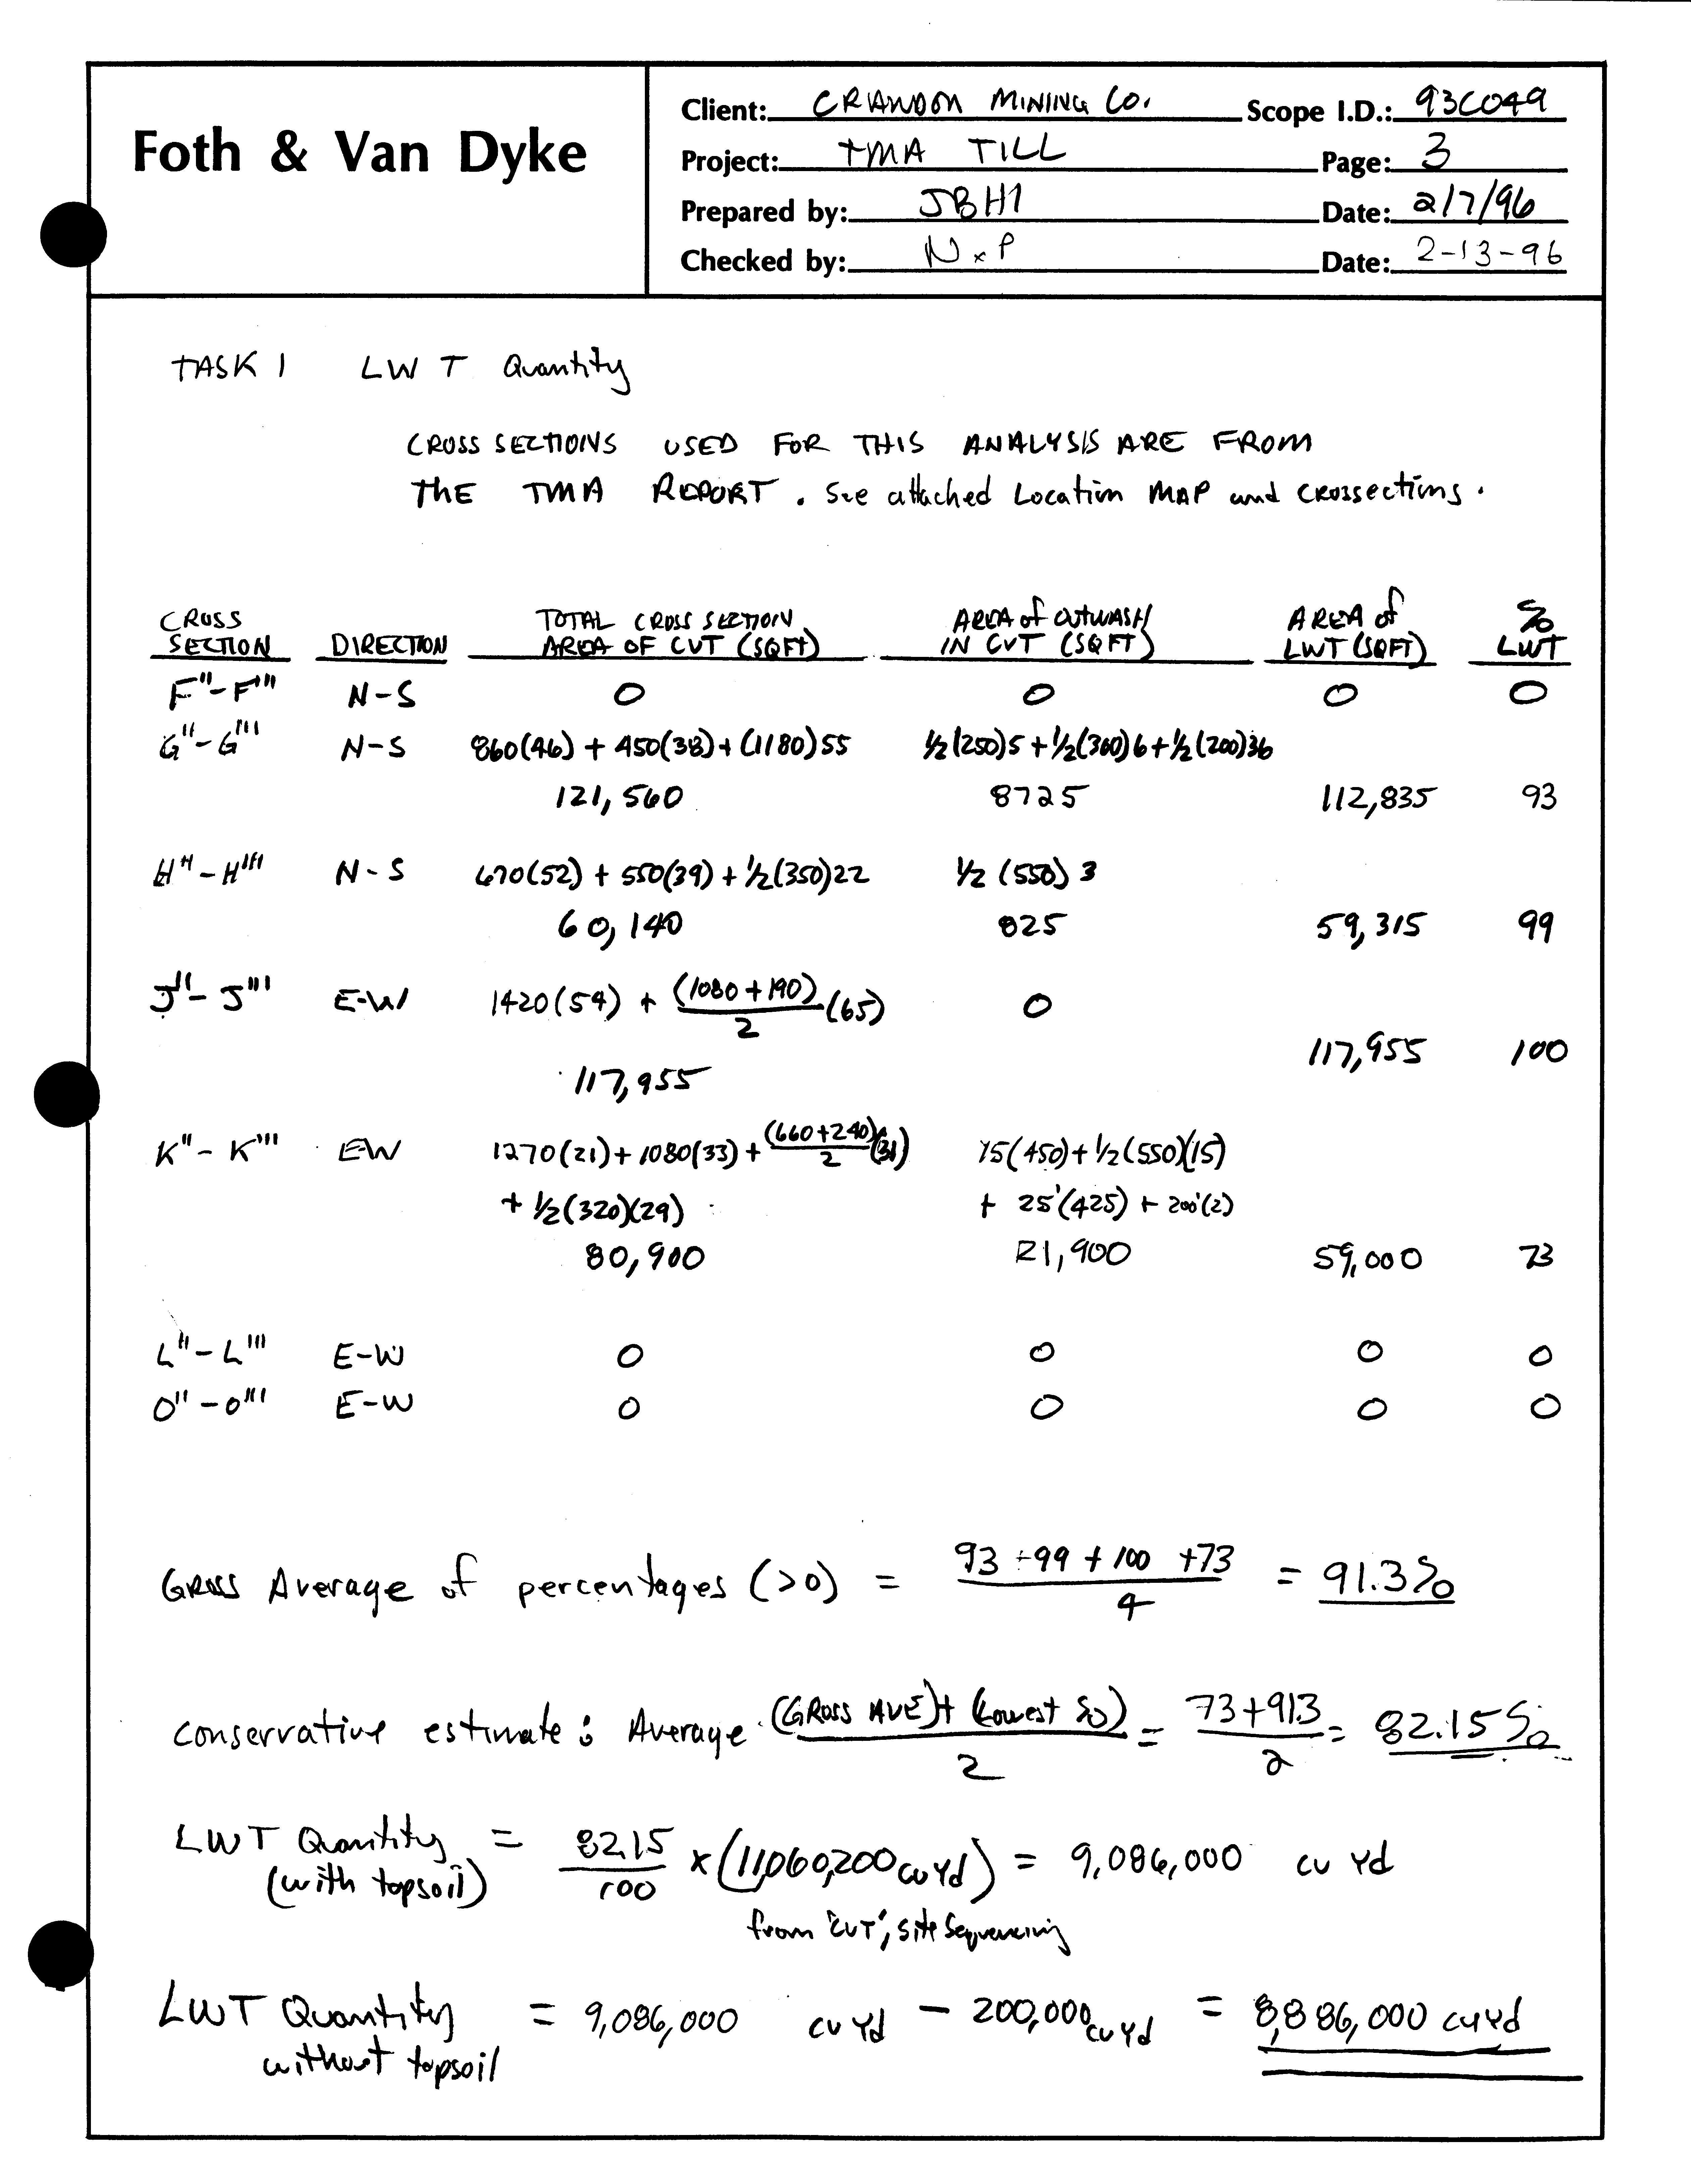 Foth & Van Dyke
Client: CRANDON MINING CO. Scope I.D.: 93C049
Project: TMA TILL Page: 3
Prepared by: JBH1 Date: 2/7/96
Checked by: NxP Date: 2-13-96
TASK 1 LWT Quantity
CROSS SECTIONS USED FOR THIS ANALYSIS ARE FROM
THE TMA REPORT. See attached Location MAP and crossections.
CROSS SECTION DIRECTION TOTAL CROSS SECTION AREA OF CUT (SQFT) AREA of OUTWASH IN CUT (SQFT) AREA of LWT (SQFT) % LWT
F''-F''' N-S 0 0 0 0
G''-G''' N-S 860(46) + 450(38) + (1180)55 1/2(250)5 + 1/2(360)6 + 1/2(200)36
121,560 8725 112,835 93
H''-H''' N-S 670(52) + 550(39) + 1/2(350)22 1/2 (550) 3
60,140 825 59,315 99
J''-J''' E-W 1420(54) + (1080+190)/2 (65) 0
117,955 100
117,955
K''-K''' EW 1270(21) + 1080(33) + (660+240)/2 (31) 15(450) + 1/2(550)(15)
+ 1/2(320)(29) + 25'(425) + 200'(2)
80,900 21,900 59,000 73
L''-L''' E-W 0 0 0 0
O''-O''' E-W 0 0 0 0
Gross Average of percentages (>0) = 93 + 99 + 100 + 73 / 4 = 91.3%
Conservative estimate: Average (Gross AVE) + (Lowest %) / 2 = 73+91.3 / 2 = 82.15%
LWT Quantity = 82.15/100 x (11,060,200 cu Yd) = 9,086,000 cu Yd
(with topsoil)
from 'CUT', Site Sequencing
LWT Quantity = 9,086,000 cu Yd - 200,000 cu Yd = 8,886,000 cu Yd
without topsoil